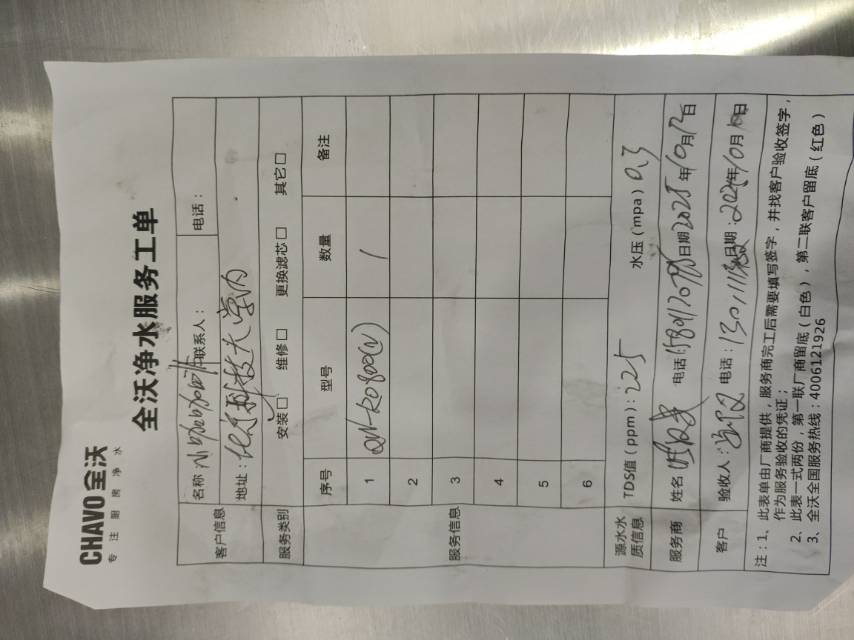 CHAVO 全沃
专注厨房净水
全沃净水服务工单
客户信息 名称 联系人： 电话：
地址：北京科技大学内
服务类别 安装□ 维修□ 更换滤芯□ 其它□
服务信息 序号 型号 数量 备注
1 1
2
3
4
5
6
源水水质信息 TDS值（ppm）：225 水压（mpa）0.3
服务商 姓名 电话： 日期 2025年10月13日
客户 验收人： 电话： 日期： 年10月 日
注：1、此表单由厂商提供，服务商完工后需要填写签字，并找客户验收签字，
作为服务验收的凭证；
2、此表一式两份，第一联厂商留底（白色），第二联客户留底（红色）
3、全沃全国服务热线：4006121926